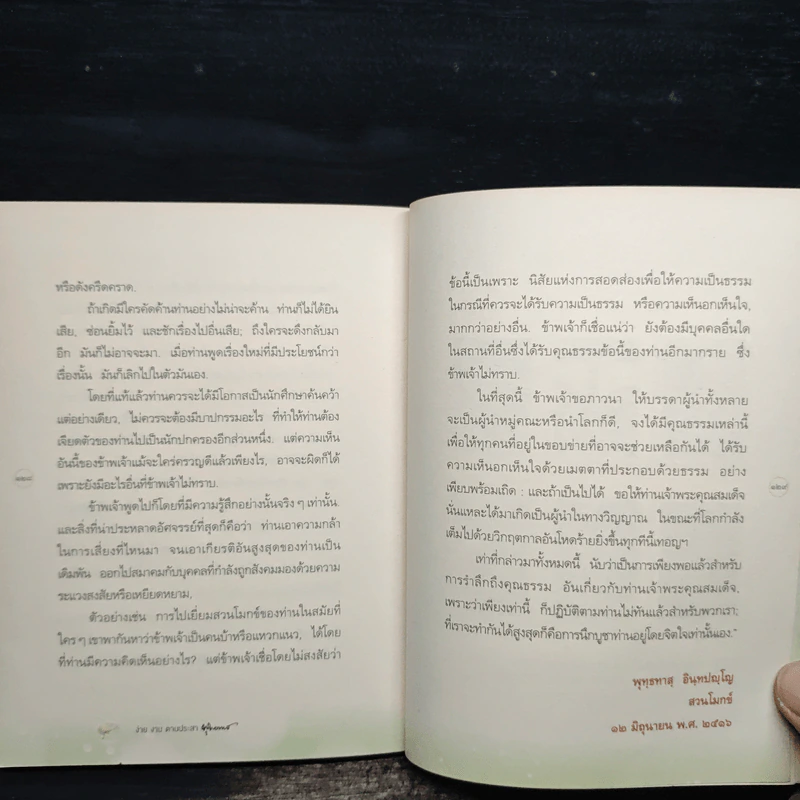 หรือดังครืดคราด.
ถ้าเกิดมีใครคัดค้านท่านอย่างไม่น่าจะค้าน ท่านก็ไม่ได้ยิน
เสีย, ซ่อนยิ้มไว้ และชักเรื่องไปอื่นเสีย; ถึงใครจะดึงกลับมา
อีก มันก็ไม่อาจจะมา. เมื่อท่านพูดเรื่องใหม่ที่มีประโยชน์กว่า
เรื่องนั้น มันก็เลิกไปในตัวมันเอง.
โดยที่แท้แล้วท่านควรจะได้มีโอกาสเป็นนักศึกษาค้นคว้า
แต่อย่างเดียว, ไม่ควรจะต้องมีบาปกรรมอะไร ที่ทำให้ท่านต้อง
เจียดตัวของท่านไปเป็นนักปกครองอีกส่วนหนึ่ง. แต่ความเห็น
อันนี้ของข้าพเจ้าแม้จะใคร่ครวญดีแล้วเพียงไร, อาจจะผิดก็ได้
เพราะยังมีอะไรอื่นที่ข้าพเจ้าไม่ทราบ.
ข้าพเจ้าพูดไปก็โดยที่มีความรู้สึกอย่างนั้นจริง ๆ เท่านั้น.
และสิ่งที่น่าประหลาดอัศจรรย์ที่สุดก็คือว่า ท่านเอาความกล้า
ในการเสี่ยงที่ไหนมา จนเอาเกียรติอันสูงสุดของท่านเป็น
เดิมพัน ออกไปสมาคมกับบุคคลที่กำลังถูกสังคมมองด้วยความ
ระแวงสงสัยหรือเหยียดหยาม,
ตัวอย่างเช่น การไปเยี่ยมสวนโมกข์ของท่านในสมัยที่
ใคร ๆ เขาพากันหาว่าข้าพเจ้าเป็นคนบ้าหรือแหวกแนว, ได้โดย
ที่ท่านมีความคิดเห็นอย่างไร? แต่ข้าพเจ้าเชื่อโดยไม่สงสัยว่า
๑๒๘
ง่าย งาม ตามประสา
ข้อนี้เป็นเพราะ นิสัยแห่งการสอดส่องเพื่อให้ความเป็นธรรม
ในกรณีที่ควรจะได้รับความเป็นธรรม หรือความเห็นอกเห็นใจ,
มากกว่าอย่างอื่น. ข้าพเจ้าก็เชื่อแน่ว่า ยังต้องมีบุคคลอื่นใด
ในสถานที่อื่นซึ่งได้รับคุณธรรมข้อนี้ของท่านอีกมากราย ซึ่ง
ข้าพเจ้าไม่ทราบ.
ในที่สุดนี้ ข้าพเจ้าขอภาวนา ให้บรรดาผู้นำทั้งหลาย
จะเป็นผู้นำหมู่คณะหรือนำโลกก็ดี, จงได้มีคุณธรรมเหล่านี้
เพื่อให้ทุกคนที่อยู่ในขอบข่ายที่อาจจะช่วยเหลือกันได้ ได้รับ
ความเห็นอกเห็นใจด้วยเมตตาที่ประกอบด้วยธรรม อย่าง
เพียบพร้อมเถิด : และถ้าเป็นไปได้ ขอให้ท่านเจ้าพระคุณสมเด็จ
นั่นแหละได้มาเกิดเป็นผู้นำในทางวิญญาณ ในขณะที่โลกกำลัง
เต็มไปด้วยวิกฤตกาลอันโหดร้ายยิ่งขึ้นทุกทีนี้เทอญฯ
เท่าที่กล่าวมาทั้งหมดนี้ นับว่าเป็นการเพียงพอแล้วสำหรับ
การรำลึกถึงคุณธรรม อันเกี่ยวกับท่านเจ้าพระคุณสมเด็จ,
เพราะว่าเพียงเท่านี้ ก็ปฏิบัติตามท่านไม่ทันแล้วสำหรับพวกเรา;
ที่เราจะทำกันได้สูงสุดก็คือการนึกบูชาท่านอยู่โดยจิตใจเท่านั้นเอง."
พุทฺธทาสุ อินฺทปญฺโญ
สวนโมกข์
๑๒ มิถุนายน พ.ศ. ๒๕๑๖
๑๒๙